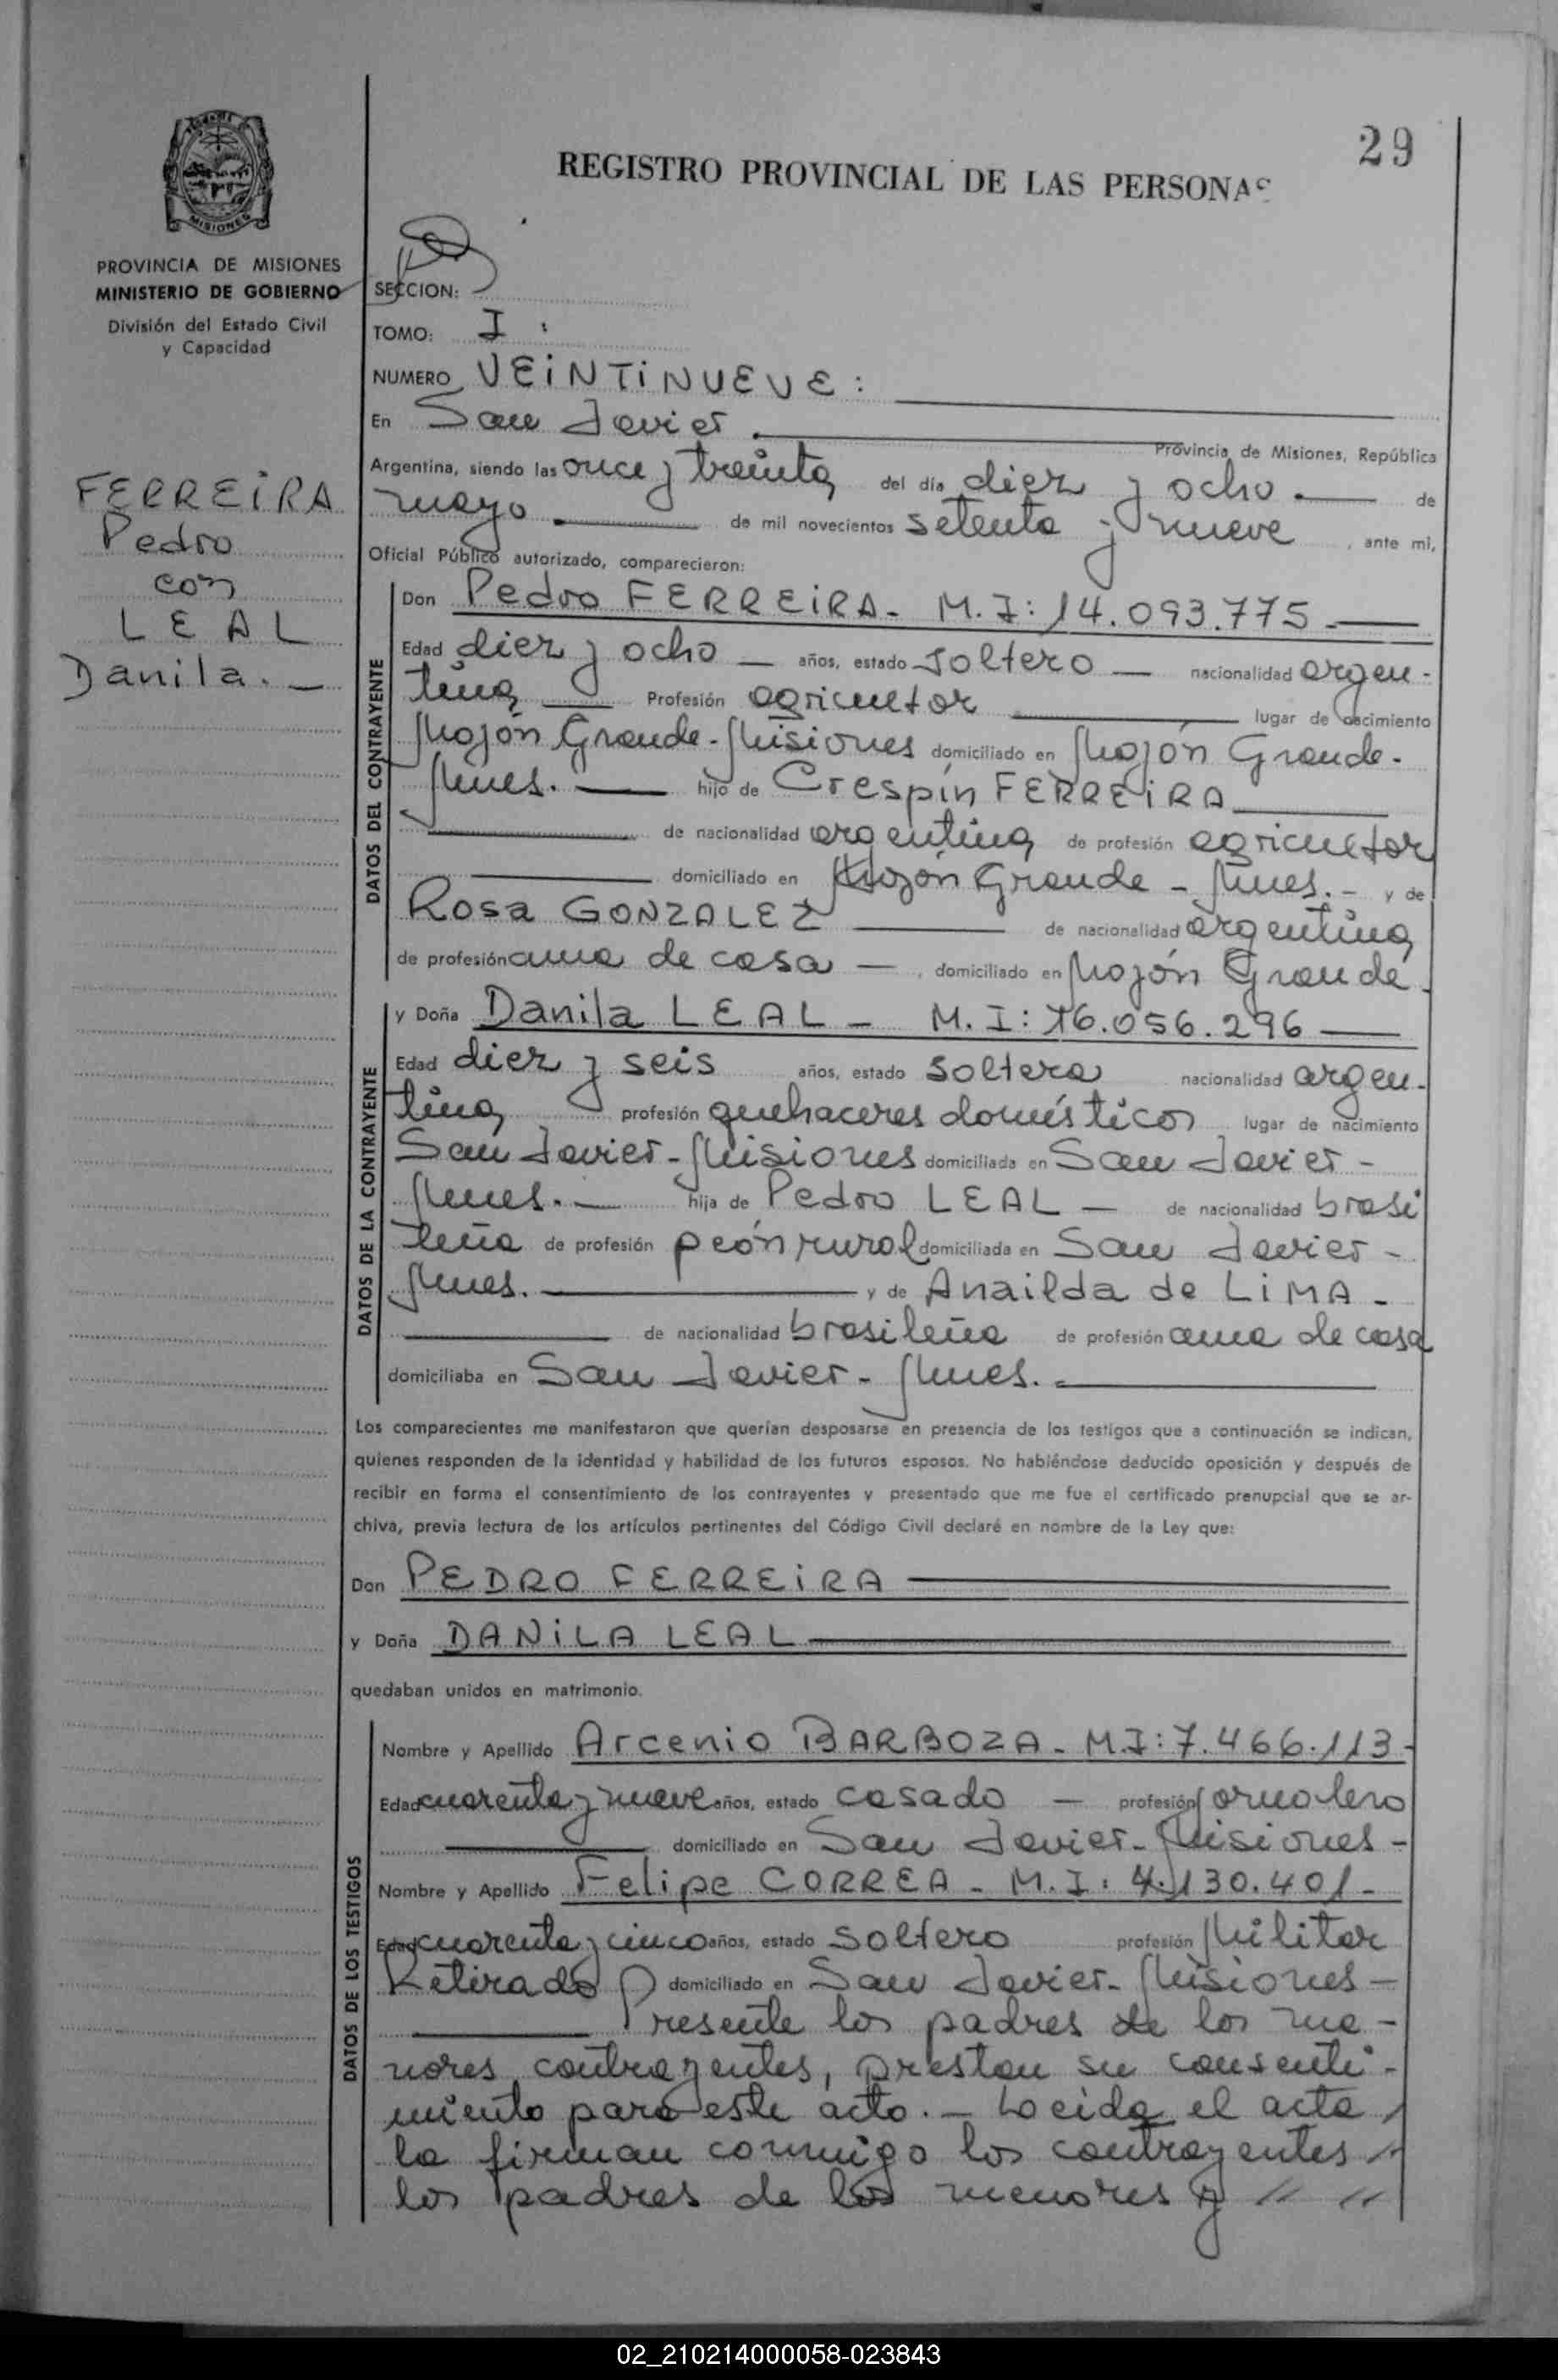 29
REGISTRO PROVINCIAL DE LAS PERSONAS
MISIONES
PROVINCIA DE MISIONES
MINISTERIO DE GOBIERNO
División del Estado Civil
y Capacidad
FERREIRA
Pedro
con
LEAL
Danila. —
SECCION:
TOMO: I :
NUMERO VEINTINUEVE :
En San Javier
Provincia de Misiones, República
Argentina, siendo las once y treinta del día diez y ocho . — de
mayo . — de mil novecientos setenta y nueve , ante mi,
Oficial Público autorizado, comparecieron:
DATOS DEL CONTRAYENTE
Don Pedro FERREIRA - M.I: 14.093.775 —
Edad diez y ocho — años, estado soltero — nacionalidad argen-
tina — Profesión agricultor — lugar de nacimiento
Mojón Grande - Misiones domiciliado en Mojón Grande -
Mnes. — hijo de Crespín FERREIRA —
— de nacionalidad argentina de profesión agricultor
— domiciliado en Mojón Grande - Mnes. - y de
Rosa GONZALEZ — de nacionalidad argentina
de profesión ama de casa — , domiciliado en Mojón Grande -
DATOS DE LA CONTRAYENTE
y Doña Danila LEAL - M.I: 16.056.296 —
Edad diez y seis años, estado soltera nacionalidad argen-
tina profesión quehaceres domésticos lugar de nacimiento
San Javier - Misiones domiciliada en San Javier -
Mnes. — hija de Pedro LEAL — de nacionalidad brasi
leña de profesión peón rural domiciliada en San Javier -
Mnes. — y de Anailda de LIMA -
— de nacionalidad brasileña de profesión ama de casa
domiciliaba en San Javier - Mnes. —
Los comparecientes me manifestaron que querían desposarse en presencia de los testigos que a continuación se indican,
quienes responden de la identidad y habilidad de los futuros esposos. No habiéndose deducido oposición y después de
recibir en forma el consentimiento de los contrayentes y presentado que me fue el certificado prenupcial que se ar-
chiva, previa lectura de los artículos pertinentes del Código Civil declaré en nombre de la Ley que:
Don PEDRO FERREIRA —
y Doña DANILA LEAL —
quedaban unidos en matrimonio.
DATOS DE LOS TESTIGOS
Nombre y Apellido Arcenio BARBOZA - M.I: 7.466.113 -
Edad cuarenta y nueve años, estado casado — profesión jornalero
— domiciliado en San Javier - Misiones -
Nombre y Apellido Felipe CORREA - M.I: 4.130.401 -
Edad cuarenta y cinco años, estado soltero profesión Militar
Retirado domiciliado en San Javier - Misiones -
— Presente los padres de los me-
nores contrayentes, prestan su consenti-
miento para este acto. - Leída el acta,
la firman conmigo los contrayentes,
los padres de los menores y // //
02_210214000058-023843